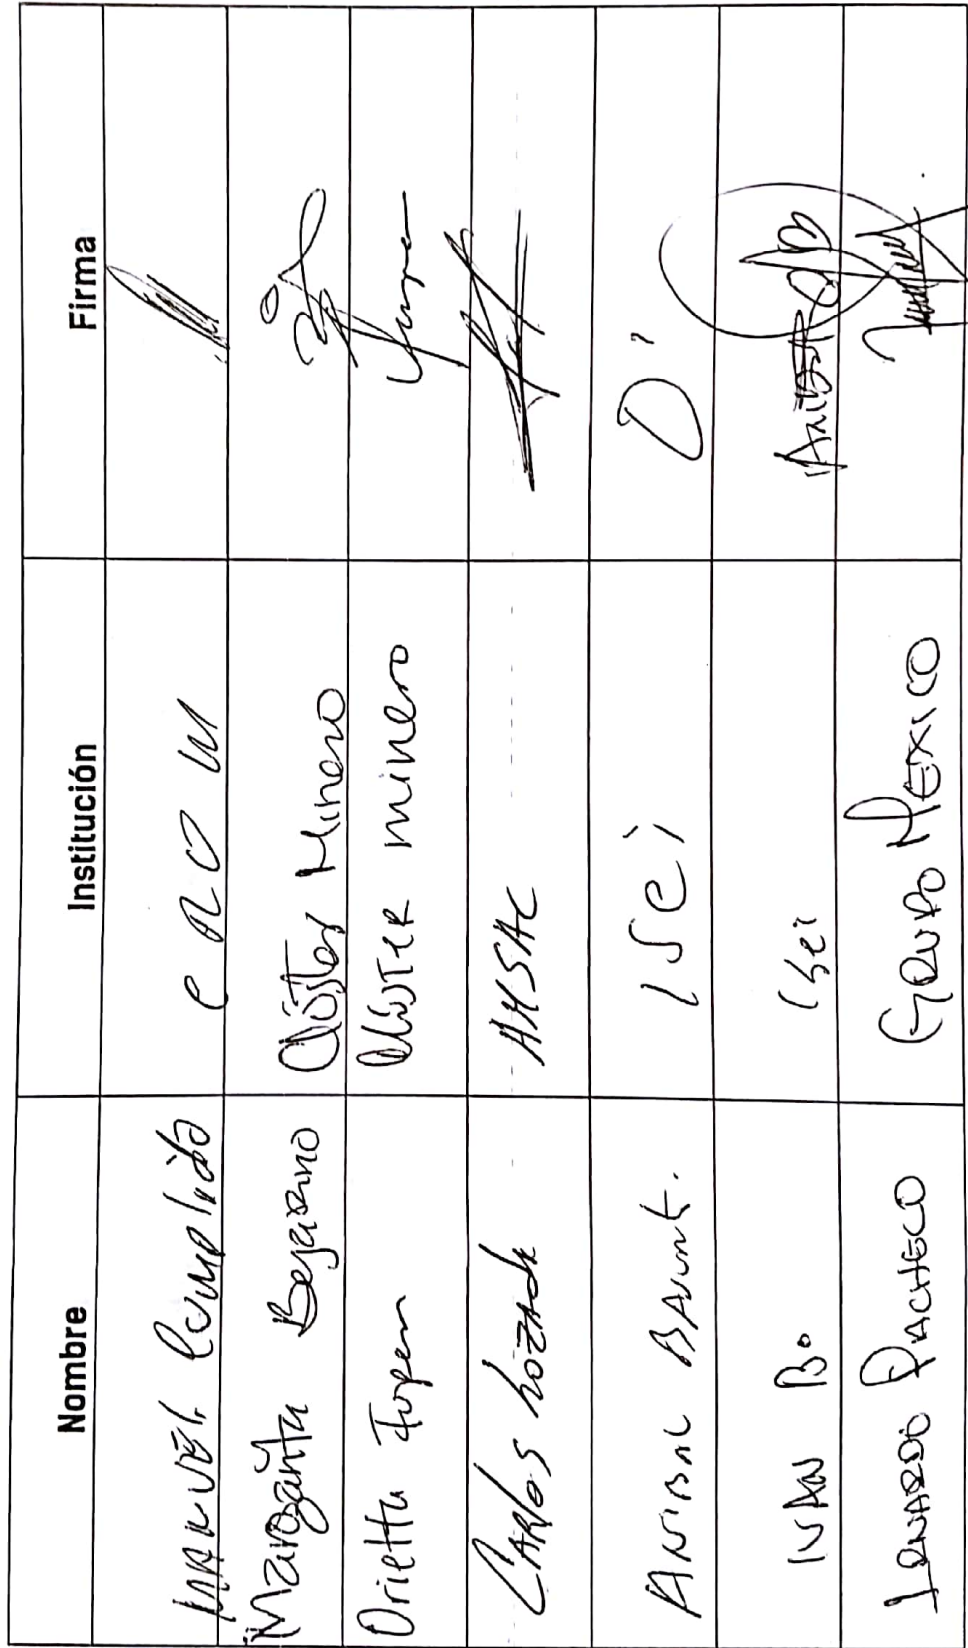 Nombre Institución Firma
Manuel Cumplido
Margarita Bejarano Clúster Minero
Orietta Clúster minero
Carlos AHSAC
Anibal isei
Ivan B. isei
Leonardo Pacheco Grupo Mexico